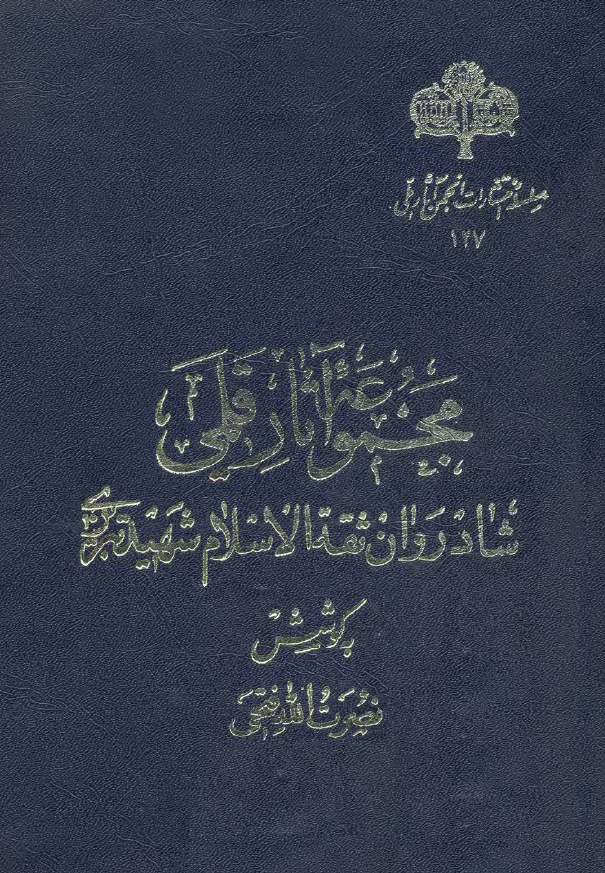 سلسلهٔ انتشارات انجمن آثار ملی
۱۲۷
مجموعهٔ آثار قلمی
شادروان ثقة الاسلام شهید تبریزی
بکوشش
نصرت الله فتحی